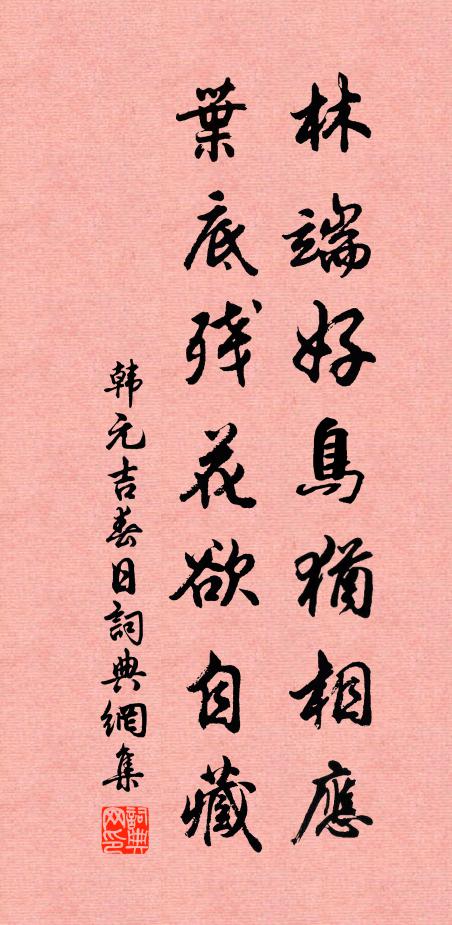 林端好鳥猶相應
葉底残花欲自藏
韩元吉春日詞典網集
詞典网印